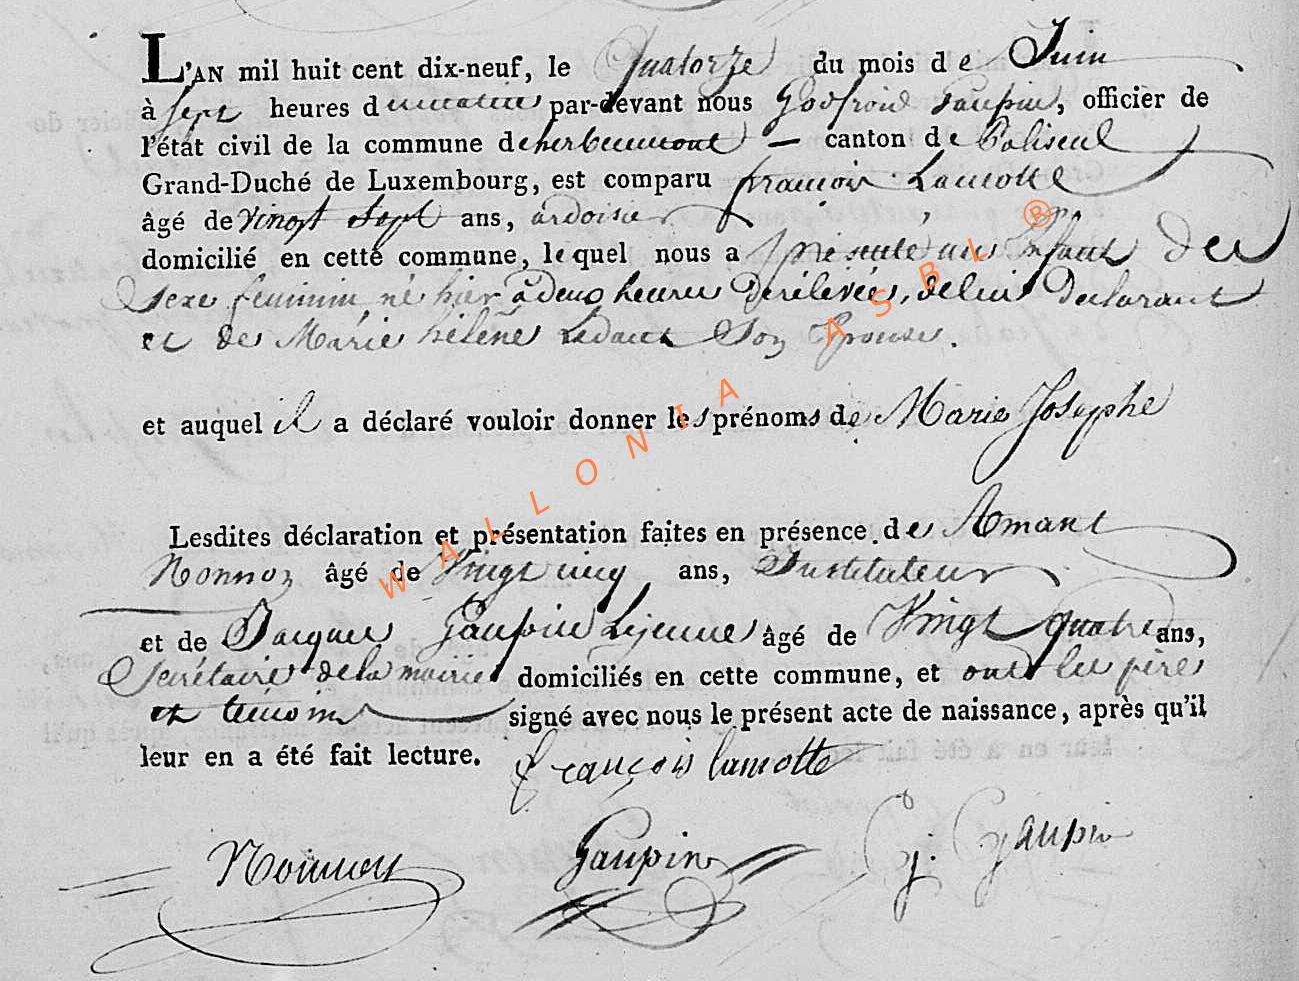 L'AN mil huit cent dix-neuf, le Quatorze du mois de Juin
à sept heures du matin par-devant nous Godfroid Gaupin, officier de
l'état civil de la commune de herbeumont — canton de Paliseul
Grand-Duché de Luxembourg, est comparu françois Lamotte
âgé de vingt sept ans, ardoisier
domicilié en cette commune, lequel nous a présenté un Enfant de
sexe féminin, né hier à deux heures de rélévées, de lui declarant
et de Marie hélène Ledant son Epouse.
et auquel il a déclaré vouloir donner les prénoms de Marie Josephe
Lesdites déclaration et présentation faites en présence de Amant
Nonnon âgé de Vingt cinq ans, Instituteur
et de Jacques Gaupin Lejeune âgé de Vingt quatre ans,
Secrétaire de la mairie domiciliés en cette commune, et ont les père
et temoins signé avec nous le présent acte de naissance, après qu'il
leur en a été fait lecture. françois lamotte
Nonnon Gaupin j. Gaupin
WALLONIA ASBL ®